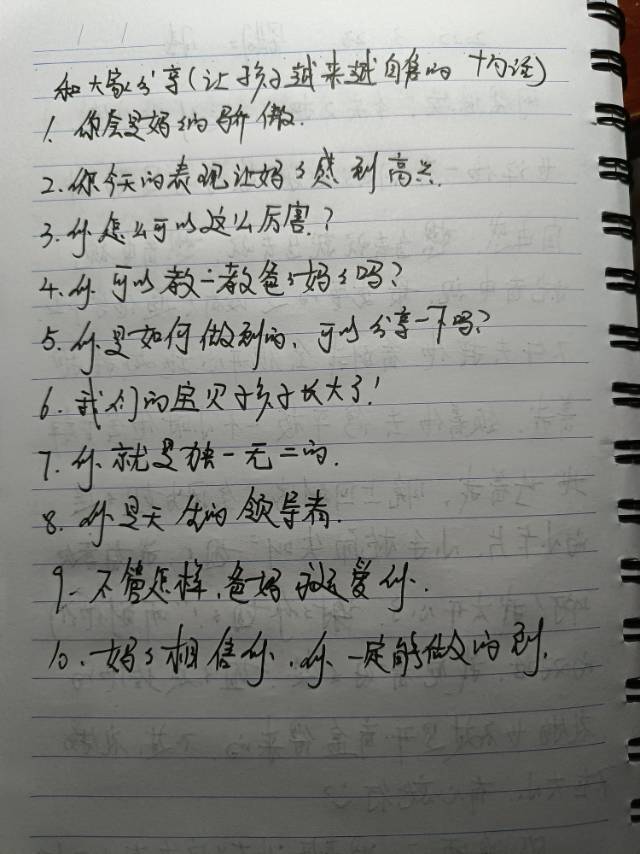 和大家分享(让孩子越来越自信的十句话)
1. 你会是妈妈的骄傲.
2. 你今天的表现让妈妈感到高兴.
3. 你怎么可以这么厉害?
4. 你可以教一教爸爸妈妈吗?
5. 你是如何做到的, 可以分享一下吗?
6. 我们的宝贝孩子长大了!
7. 你就是独一无二的.
8. 你是天生的领导者.
9. 不管怎样, 爸妈都爱你.
10. 妈妈相信你, 你一定能做的到.